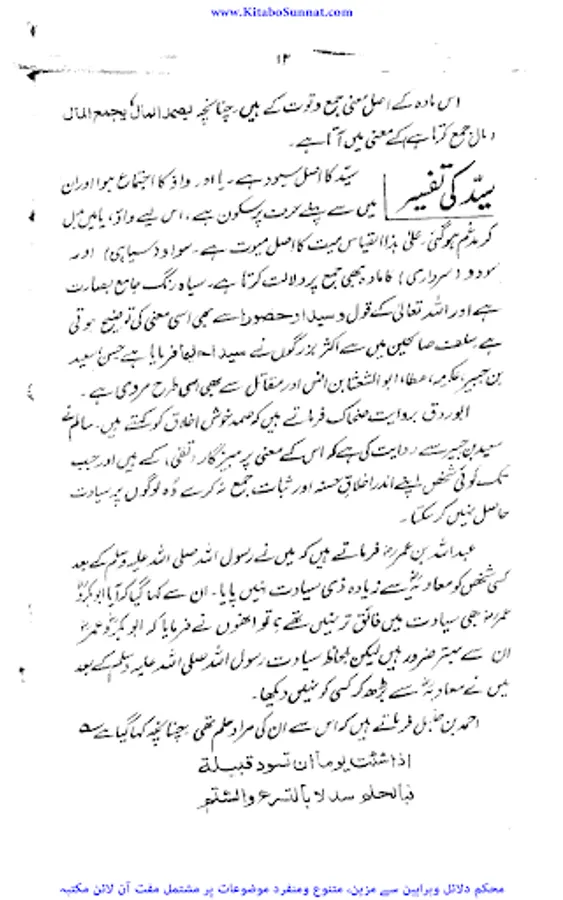 www.KitaboSunnat.com
۱۳
اس مادہ کے اصل معنی جمع وقوت کے ہیں، چنانچہ یصمد المال کا یجمع المال
(مال جمع کرتا ہے) کے معنی میں آتا ہے۔
سیّد کی تفسیر
سیّد کا اصل سیود ہے۔ یا اور واؤ کا اجتماع ہوا اور ان
میں سے پہلے حرف پر سکون ہے، اس لیے واؤ، یا میں بدل
کر مدغم ہوگئی، علیٰ ہذا القیاس میت کا اصل میوت ہے۔ سواد (سیاہی) اور
سودد (سرداری) کا مادہ بھی جمع پر دلالت کرتا ہے۔ سیاہ رنگ جامع بصارت
ہے اور اللہ تعالیٰ کے قول وسیدا وحصورا سے بھی اسی معنی کی توضیح ہوتی
ہے سلف صالحین میں سے اکثر بزرگوں نے سیدا حلیما فرمایا ہے حسن سعید
بن جبیر، عکرمہ، عطا، ابو الشعثا بن انس اور مقاتل سے بھی اسی طرح مروی ہے۔
ابوروق بروایت ضحاک فرماتے ہیں کہ صمد خوش اخلاق کو کہتے ہیں۔ سالم نے
سعید بن جبیر سے روایت کی ہے کہ اس کے معنی پرہیزگار (تقی) کے ہیں اور جب
تک کوئی شخص اپنے اندر اخلاق حسنہ اور ثبات جمع نہ کرے وہ لوگوں پر سیادت
حاصل نہیں کر سکتا۔
عبد اللہ بن عمرؓ فرماتے ہیں کہ میں نے رسول اللہ صلی اللہ علیہ وسلم کے بعد
کسی شخص کو معاویہؓ سے زیادہ ذی سیادت نہیں پایا۔ ان سے کہا گیا کہ آیا ابوبکرؓ و
عمرؓ بھی سیادت میں فائق تر نہیں تھے؟ تو انھوں نے فرمایا کہ ابوبکرؓ و عمرؓ
ان سے بہتر ضرور ہیں لیکن بلحاظ سیادت رسول اللہ صلی اللہ علیہ وسلم کے بعد
میں نے معاویہؓ سے بڑھ کر کسی کو نہیں دیکھا۔
احمد بن حنبل فرماتے ہیں کہ اس سے ان کی مراد حلم تھی، چنانچہ کہا گیا ہے
اذا شئت یوما ان تسود قبیلۃ
فبالحلم سد لا بالتسرع والشتم
محکم دلائل وبراہین سے مزین، متنوع ومنفرد موضوعات پر مشتمل مفت آن لائن مکتبہ